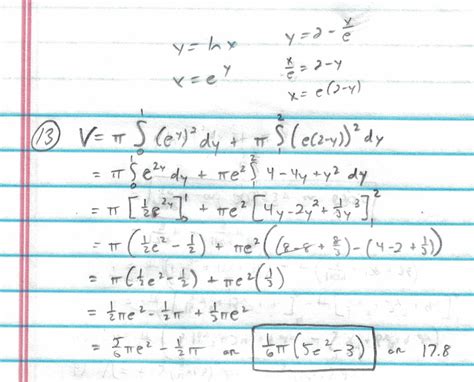 y = ln x    y = 2 - x/e
x = e^y    x/e = 2-y
x = e(2-y)
(13) V = π ∫₀¹ (e^y)² dy + π ∫₁² (e(2-y))² dy
= π ∫₀¹ e^{2y} dy + πe² ∫₁² 4 - 4y + y² dy
= π [½e^{2y}]₀¹ + πe² [4y - 2y² + ⅓y³]₁²
= π(½e² - ½) + πe² ((8-8+8/3) - (4-2+⅓))
= π(½e² - ½) + πe² (⅓)
= ½πe² - ½π + ⅓πe²
= 5/6 πe² - ½π or ⅙π(5e² - 3) or 17.8